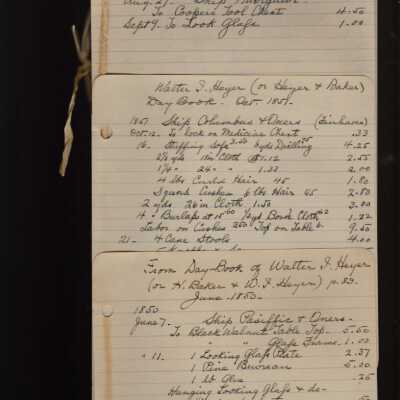 Aug. 27. Ship
To Cooper's Tool Chest 4.50
Sept 9. To Look Glass 1.00
Walter I. Heyer (or Heyer & Baker)
Day Book. Oct. 1857.
1857 Ship Columbus & Oners (Fairhaven)
Oct. 12. To lock on Medicine Chest .33
16. Stuffing Sofa 3.50 6 yds Drilling 4.25
2 1/4 yds 18 in Cloth @ 1.12 2.55
1 1/4 " 24 " " 1.33 2.00
4 lbs Curld Hair 45 1.80
Squab Cushen 6 lbs Hair 45 2.80
2 yds 26 in Cloth 1.50 3.00
Labor on Cushes 250 Top on Table 9.50
21. 4 Cane Stools 4.00
From Day-Book of Walter I. Heyer
(or H. Baker & W. I. Heyer) p. 33.
June 1850.
1850
June 7. Ship Pasiffic & Oners.
To Black Walnut Table Top 5.50
" " Glass Frame 1.00
" 11. 1 Looking Glass Plate 2.37
1 Pine Beureau 5.00
1 lb Glue .25
Hanging Looking Glass & do